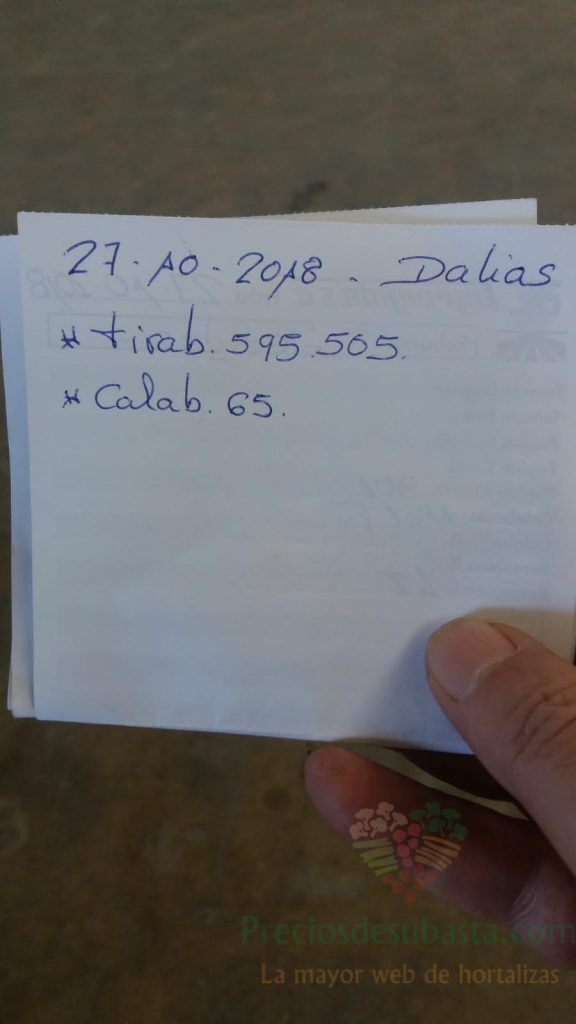 27.10.2018. Dalias
* tirab. 595.505.
* Calab. 65.
Preciosdesubasta.com
La mayor web de hortalizas